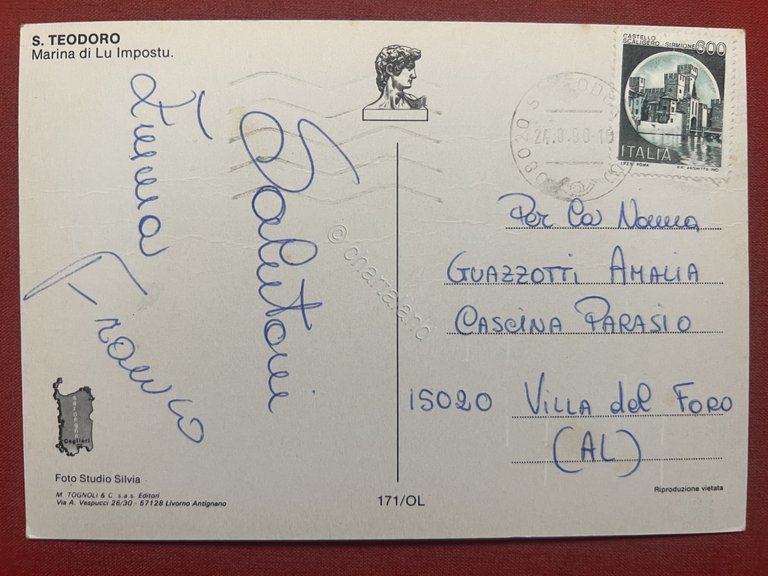 S. TEODORO
Marina di Lu Impostu.
CASTELLO
SCALIGERO - SIRMIONE
300
ITALIA
I.P.Z.S. ROMA
Salutoni
Emma
Franco
Per La Nonna
GUAZZOTTI AMALIA
CASCINA PARASIO
15020 VILLA del FORO
(AL)
sardegna
Cagliari
Foto Studio Silvia
M. TOGNOLI & C. s.a.s. Editori
Via A. Vespucci 26/30 - 57128 Livorno Antignano
171/OL
Riproduzione vietata
© charta1.enc